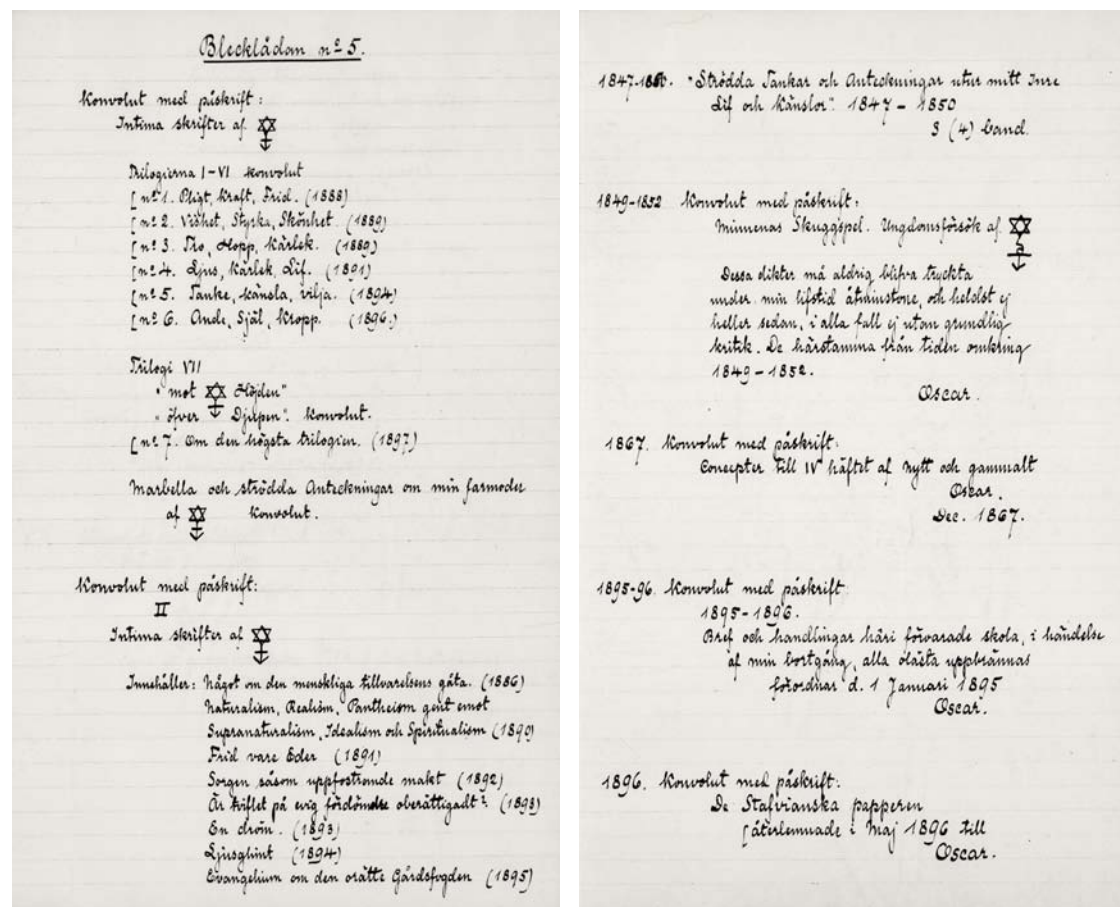 Blecklådan nº 5.
Konvolut med påskrift:
Intima skrifter af
Trilogierna I-VI konvolut
[nº 1. Pligt, kraft, Frid. (1888)
[nº 2. Vishet, Styrka, Skönhet. (1889)
[nº 3. Tro, Hopp, Kärlek. (1889)
[nº 4. Ljus, Kärlek, Lif. (1891)
[nº 5. Tanke, känsla, vilja. (1894)
[nº 6. Ande, Själ, Kropp. (1896.)
Trilogi VII
"mot Höjden"
"öfver Djupen". Konvolut.
[nº 7. Om den högsta trilogien. (1897)
Marbella och strödda Anteckningar om min farmoder
af Konvolut.
Konvolut med påskrift:
II
Intima skrifter af
Innehåller: Något om den menskliga tillvarelsens gåta. (1886)
Naturalism, Realism, Pantheism gent emot
Supranaturalism, Idealism och Spiritualism (1890)
Frid vare Eder (1891)
Sorgen såsom uppfostrande makt (1892)
Är tviflet på evig fördömelse oberättigadt? (1893)
En dröm. (1893)
Ljusglimt (1894)
Evangelium om den orätte Gårdsfogden (1895)
1847-1850. "Strödda Tankar och Anteckningar utur mitt Inre
Lif och Känslor". 1847 - 1850
3 (4) band.
1849-1852 Konvolut med påskrift:
Minnenas Skuggspel. Ungdomsförsök af
Dessa dikter må aldrig blifva tryckta
under min lifstid åtminstone, och heldst ej
heller sedan, i alla fall ej utan grundlig
kritik. De härstamma från tiden omkring
1849 - 1852.
Oscar.
1867. Konvolut med påskrift:
Concepter till IV häftet af nytt och gammalt
Oscar.
Dec. 1867.
1895-96. Konvolut med påskrift:
1895-1896.
Bref och handlingar häri förvarade skola, i händelse
af min bortgång, alla olästa uppbrännas
förordnar d. 1 Januari 1895
Oscar.
1896. Konvolut med påskrift:
De Stafvianska papperen
[återlemnade i Maj 1896 till
Oscar.